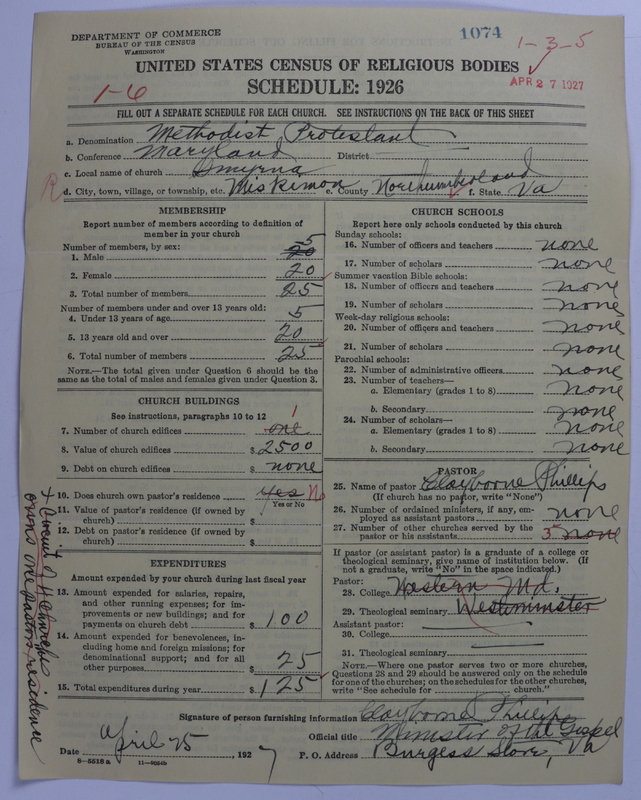 DEPARTMENT OF COMMERCE
BUREAU OF THE CENSUS
WASHINGTON
1074
1-3-5
UNITED STATES CENSUS OF RELIGIOUS BODIES
SCHEDULE: 1926
APR 27 1927
1-6
FILL OUT A SEPARATE SCHEDULE FOR EACH CHURCH. SEE INSTRUCTIONS ON THE BACK OF THIS SHEET
a. Denomination Methodist Protestant
b. Conference Maryland District
c. Local name of church Smyrna
R d. City, town, village, or township, etc. Miskimon e. County Northumberland f. State Va
MEMBERSHIP
Report number of members according to definition of
member in your church
Number of members, by sex:
1. Male 20 5
2. Female 20
3. Total number of members 25
Number of members under and over 13 years old:
4. Under 13 years of age 5
5. 13 years old and over 20
6. Total number of members 25
NOTE.—The total given under Question 6 should be
same as the total of males and females given under Question 3.
CHURCH BUILDINGS
See instructions, paragraphs 10 to 12
7. Number of church edifices one 1
8. Value of church edifices $ 2500
9. Debt on church edifices $ none
10. Does church own pastor's residence yes No
Yes or No
11. Value of pastor's residence (if owned by
church) $
12. Debt on pastor's residence (if owned by
church) $
EXPENDITURES
Amount expended by your church during last fiscal year
13. Amount expended for salaries, repairs,
and other running expenses; for im-
provements or new buildings; and for
payments on church debt $ 100
14. Amount expended for benevolences, in-
cluding home and foreign missions; for
denominational support; and for all
other purposes 25
15. Total expenditures during year $ 125
CHURCH SCHOOLS
Report here only schools conducted by this church
Sunday schools:
16. Number of officers and teachers none
17. Number of scholars none
Summer vacation Bible schools:
18. Number of officers and teachers none
19. Number of scholars none
Week-day religious schools:
20. Number of officers and teachers none
21. Number of scholars none
Parochial schools:
22. Number of administrative officers none
23. Number of teachers—
a. Elementary (grades 1 to 8) none
b. Secondary none
24. Number of scholars—
a. Elementary (grades 1 to 8) none
b. Secondary none
PASTOR
25. Name of pastor Clayborne Phillips
(If church has no pastor, write "None")
26. Number of ordained ministers, if any, em-
ployed as assistant pastors none
27. Number of other churches served by the
pastor or his assistants 3 none
If pastor (or assistant pastor) is a graduate of a college or
theological seminary, give name of institution below. (If
not a graduate, write "No" in the space indicated.)
Pastor:
28. College Western Md.
29. Theological seminary Westminster
Assistant pastor:
30. College
31. Theological seminary
NOTE.—Where one pastor serves two or more churches,
Questions 28 and 29 should be answered only on the schedule
for one of the churches; on the schedules for the other churches,
write "See schedule for church."
Signature of person furnishing information Clayborne Phillips
Official title Minister of the Gospel
Date April 25, 1927
P. O. Address Burgess Store, Va
8-5518 a
owns one pastors residence